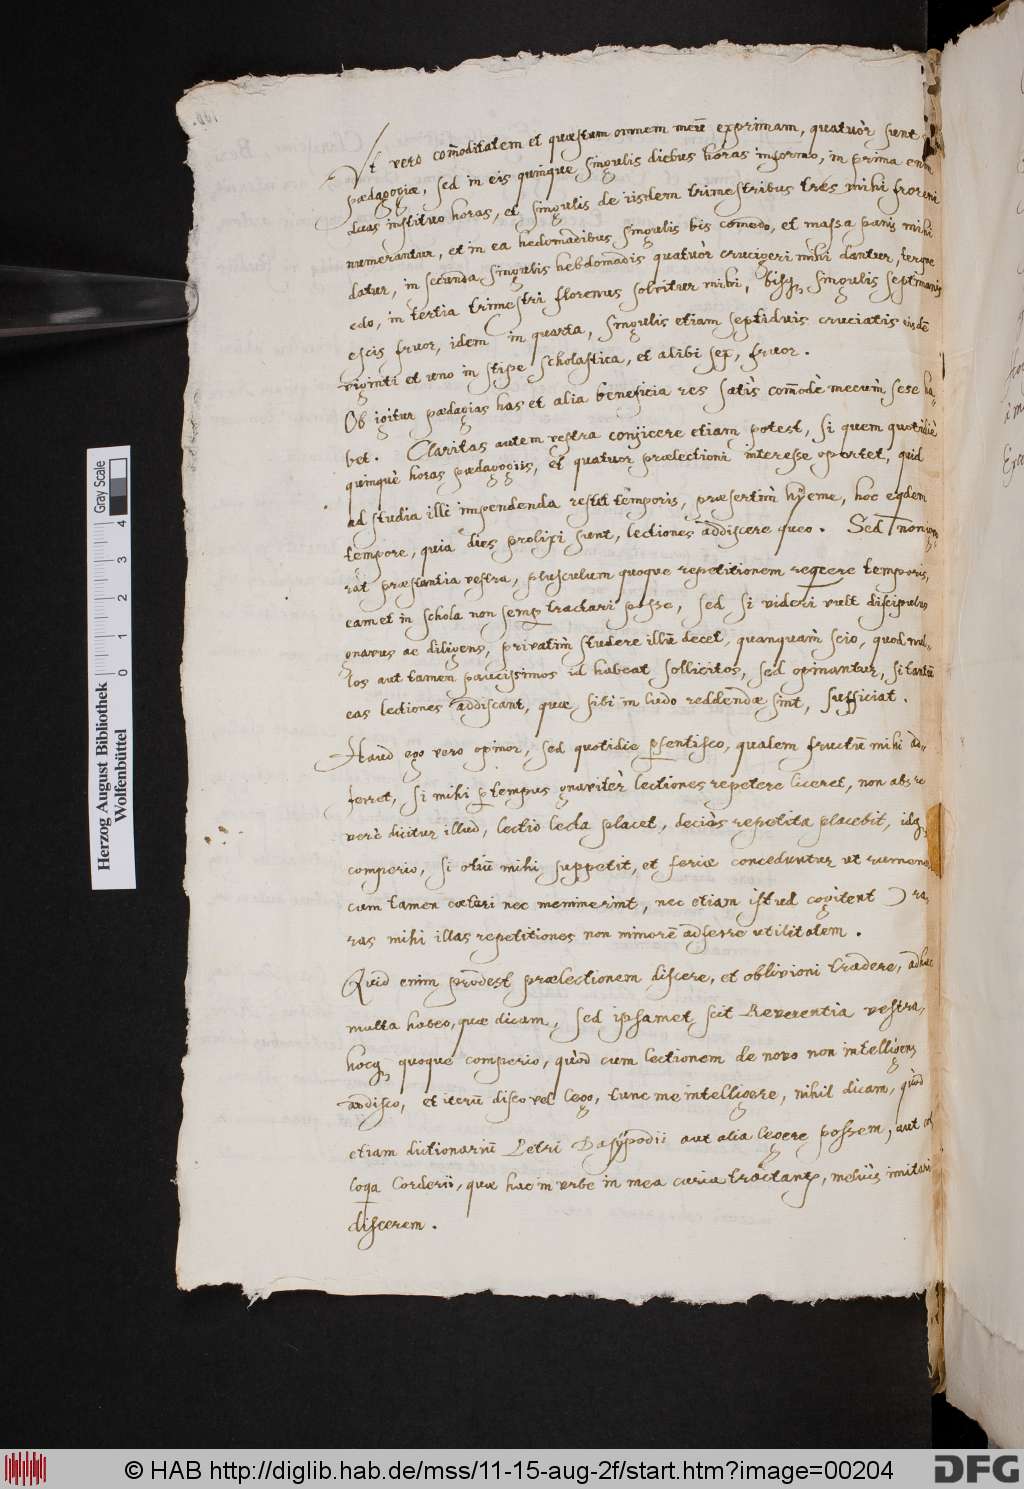 Ut vero com̄oditatem et quæstum omnem meū exprimam, quatuòr sunt
pædagogiæ, sed in eis quinque singulis diebus horas informo, in prima enim
duas instituo horas, et singulis de iisdem trimestribus tres mihi floreni
numerantur, et in ea hedomadibus singulis bis comedo, et massa panis mihi
datur, in secunda singulis hebdomadis quatuòr crucigeri mihi dantur, terque
edo, in tertia trimestri florenus solvitur mihi, bisq̃ singulis septimanis
escis fruor, idem in quarta, singulis etiam septiduis cruciatis eisdē
viginti et uno in stipe scholastica, et alibi sep̃, fruor.
Ob igitur pædagias has et alia beneficia res satìs com̄odè mecum̀ sese ha-
bet. Claritas autem vestra conjicere etiam potest, si quem quotidiè
quinquè horas pædagogiis, et quatuor prælectioni interesse oportet, quid
ad studia illi impendenda restet temporis, præsertim̀ hyeme, hoc eq̃dem
tempore, quia dies prolixi sunt, lectiones addiscere queo. Sed non
rat præstantia vestra, plusculum quoque repetitionem req̃rere temporis,
eam et in schola non semp̲ tractari posse, sed si videri vult discipulus
gnavus ac diligens, privatim̀ studere illū decet, quanquàm scio, quod mul-
tos aut tamen paucissimos id habeat sollicitos, sed opinantur, si tantū
eas lectiones addiscant, quæ sibi in ludo reddendæ sint, sufficiat.
Haud ego vero opinor, sed quotidie p̲sentisco, qualem fructū mihi ad-
ferret, si mihi p̲ tempus gnavitèr lectiones repetere liceret, non abs re
verè dicitur illud, lectio lecta placet, decies repetita placebit, idq̃
comperio, si otiū mihi suppetit, et feriæ conceduntur ut rumene
cum tamen cæteri nec meminerint, nec etiam istud cogitent) ra-
ras mihi illas repetitiones non minorē adferre utilitatem.
Quid enim prodest prælectionem discere, et oblivioni tradere, adhuc
multa habeo, quæ dicam, sed ipsamet scit Reverentia vestra,
hocq̃ quoque comperio, quòd cum lectionem de novo non intelligens
addisco, et iterū disco vel lego, tunc me intelligere, nihil dicam, quòd
etiam dictionariū Petri Dasypodii aut alia legere possem, aut col
loq̃a Corderii, quæ hac in urbe in mea curia tractant᷑, meliùs imitari
discerem.
Herzog August Bibliothek
Wolfenbüttel
0 1 2 3 4 Gray Scale
© HAB http://diglib.hab.de/mss/11-15-aug-2f/start.htm?image=00204
DFG